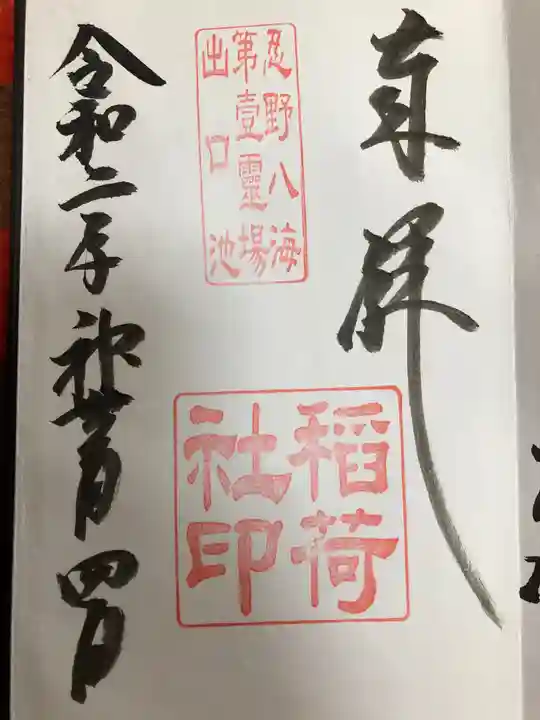 奉拝
忍野八海
第壹靈場
出口池
稲荷
社印
令和二年神無月四日